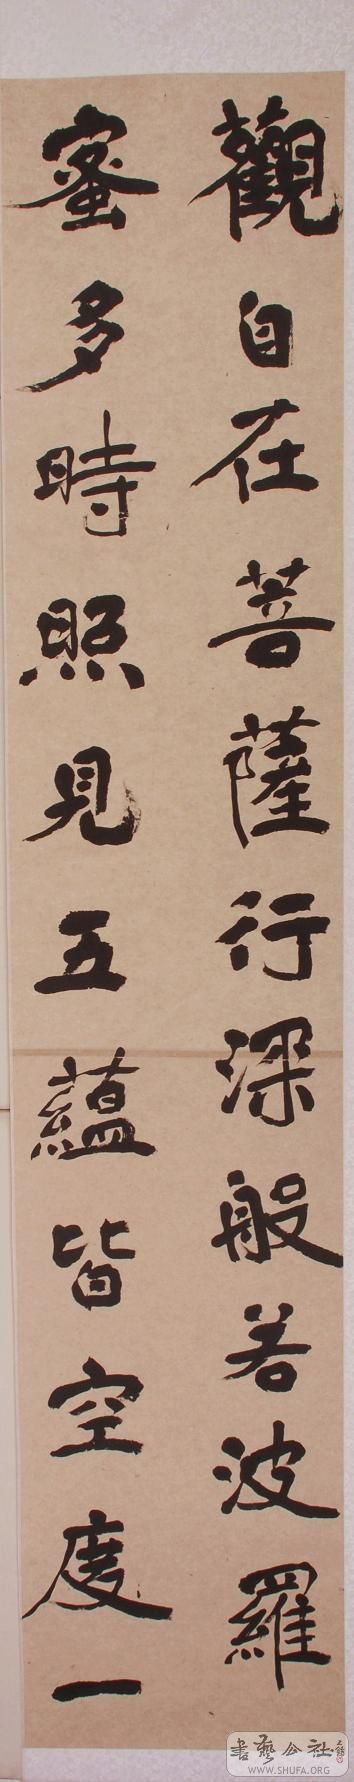 觀自在菩薩行深般若波羅
蜜多時照見五蘊皆空度一
書藝公社
WWW.SHUFA.ORG